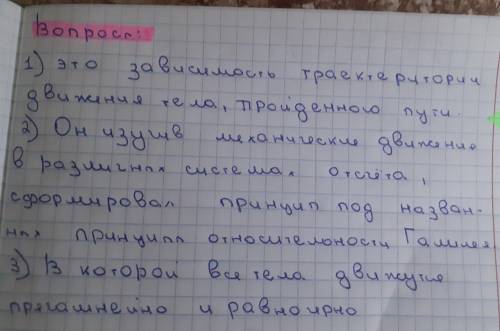 Вопросы:
1) это зависимость траектеритории
движения тела, пройденного пути.
2) Он изучив механические движение
в различных системах отсчёта,
сформировал принцип под назван-
ных принципп относительности Галилея
3) В которой все тела движутся
прягамнейно и равноирно